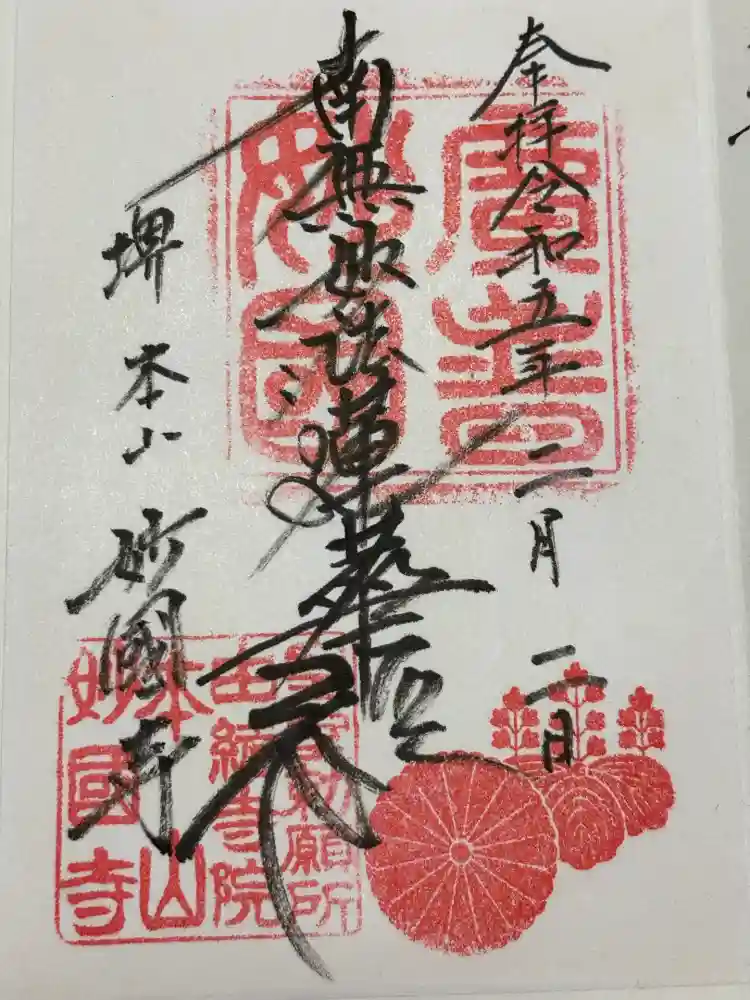 奉拝令和五年二月二日
南無妙法蓮華経
堺本山妙國寺
廣普
妙國
勅願所
由緒寺院
本山
妙國寺